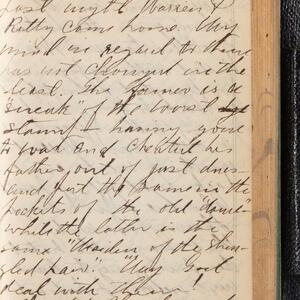 last night Warren &
Kitty came home. My
mind in regard to them
has not changed in the
least. The former is a
"sneak" of the worst
stamp – having gone
to war and cheated his
father out of just dues
and put the same in the
pockets of the old
while the latter is the
same "Maiden of the Shin-
gled hair." "May God
deal with them!